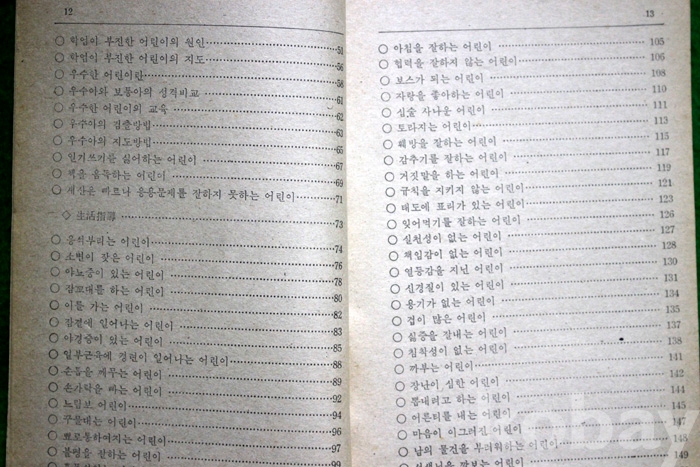 12
○ 학업이 부진한 어린이의 원인 51
○ 학업이 부진한 어린이의 지도 56
○ 우수한 어린이란 58
○ 우수아와 보통아의 성격비교 61
○ 우수한 어린이의 교육 62
○ 우수아의 검출방법 63
○ 우수아의 지도방법 65
○ 일기쓰기를 싫어하는 어린이 67
○ 책을 음독하는 어린이 69
○ 계산은 빠르나 응용문제를 잘하지 못하는 어린이 71
◇ 生活指導 73
○ 음식부리는 어린이 74
○ 소변이 잦은 어린이 76
○ 야뇨증이 있는 어린이 78
○ 잠꼬대를 하는 어린이 80
○ 이를 가는 어린이 82
○ 잠결에 일어나는 어린이 83
○ 야경증이 있는 어린이 85
○ 일부근육에 경련이 일어나는 어린이 88
○ 손톱을 깨무는 어린이 89
○ 손가락을 빠는 어린이 92
○ 느림보 어린이 94
○ 주물대는 어린이 96
○ 뾰로통하여지는 어린이 97
○ 불평을 잘하는 어린이 99
13
○ 아첨을 잘하는 어린이 105
○ 협력을 잘하지 않는 어린이 106
○ 보스가 되는 어린이 108
○ 자랑을 좋아하는 어린이 110
○ 심술 사나운 어린이 111
○ 토라지는 어린이 113
○ 훼방을 잘하는 어린이 115
○ 감추기를 잘하는 어린이 117
○ 거짓말을 하는 어린이 119
○ 규칙을 지키지 않는 어린이 121
○ 태도에 표리가 있는 어린이 123
○ 잊어먹기를 잘하는 어린이 126
○ 실천성이 없는 어린이 127
○ 책임감이 없는 어린이 128
○ 열등감을 지닌 어린이 130
○ 신경질이 있는 어린이 131
○ 용기가 없는 어린이 134
○ 겁이 많은 어린이 135
○ 싫증을 잘내는 어린이 137
○ 침착성이 없는 어린이 138
○ 까부는 어린이 141
○ 장난이 심한 어린이 142
○ 뽐내려고 하는 어린이 144
○ 어른티를 내는 어린이 145
○ 마음이 이그러진 어린이 147
○ 남의 물건을 부러워하는 어린이 148
149